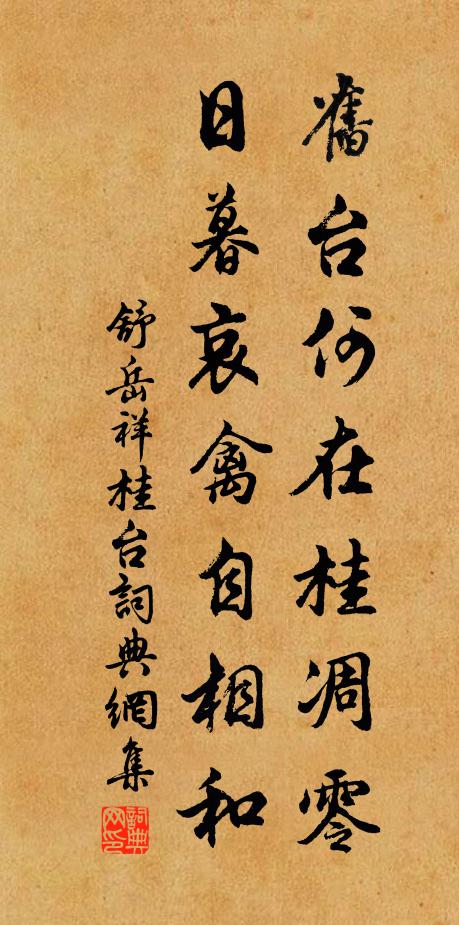 舊台何在桂凋零
日暮哀禽自相和
舒岳祥桂台詞典網集
詞典网印